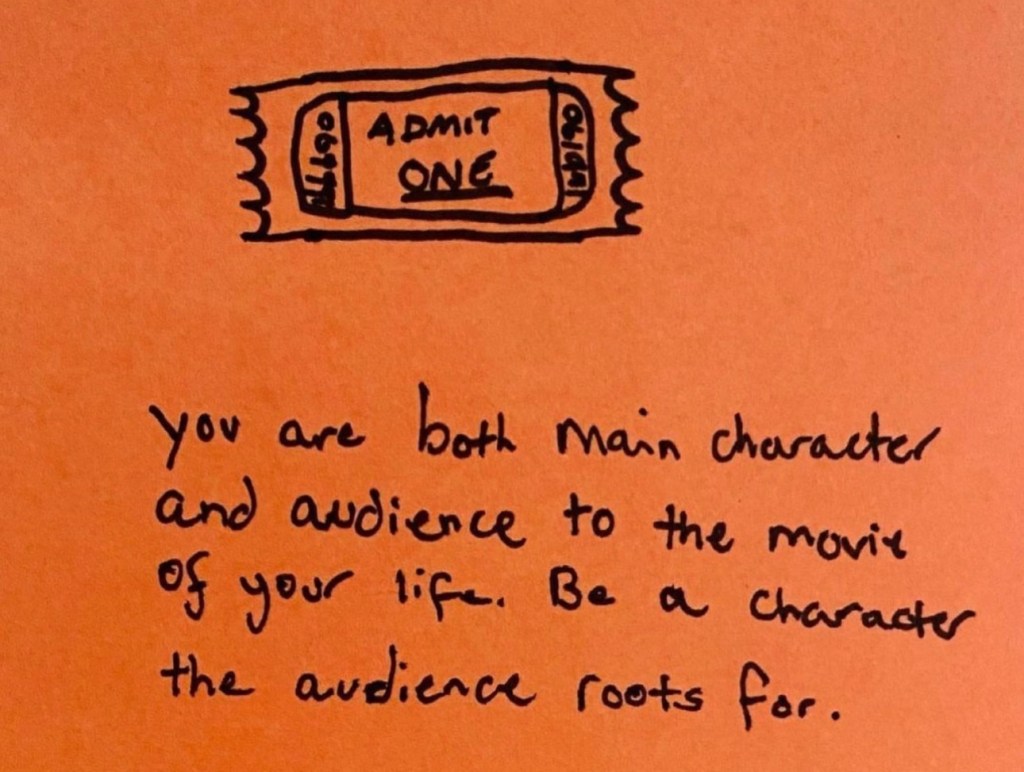 ADMIT
ONE
you are both main character
and audience to the movie
of your life. Be a character
the audience roots for.